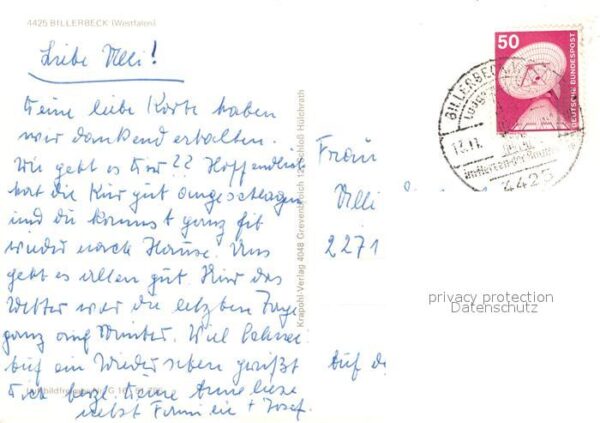 4425 BILLERBECK (Westfalen)
Liebe Villi!
Deine liebe Karte haben
wir dankend erhalten.
Wie geht es Dir?? Hoffendlich
hat die Kur gut angeschlagen
und du kommst ganz fit
wieder nach Hause. Uns
geht es allen gut. Nur das
Wetter war die letzten Tage
ganz auf Winter. Viel
Auf ein Wiedersehen grüßt
Dich herzl. Deine Anneliese
nebst Familie + Josef.
Krapohl-Verlag 4048 Grevenbroich 12 Schloß Hülchrath
50
DEUTSCHE BUNDESPOST
BILLERBECK
im Herzen der
4425
Frau
Villi
2271
privacy protection
Datenschutz